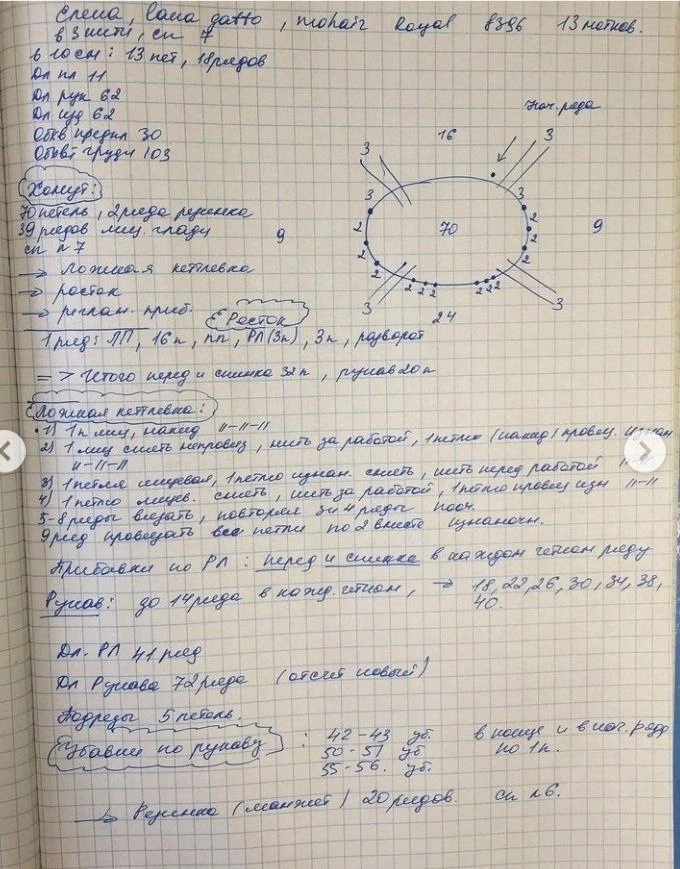 Слема, Lana gatto, mohair Royal 8396 13 мотков.
в 3 нити, сп 7
в 10 см: 13 пет, 18 рядов
Дл пл 11
Дл рук 62
Дл изд 62
Обхв предпл 30
Обхват груди 103
Нач. ряда
16
3
3
3
3
2
2
2
2
2
2
9
70
9
2 2 2
2 2 2
24
3
3
Хомут:
70 петель, 2 ряда резинка
39 рядов лиц. глади
сп n 7
→ Ложная кеттлевка
→ росток
→ реглан. приб.
Росток
1 ряд: ЛП, 16п, пп, РЛ(3п), 3п, разворот
=> Итого перед и спинка 32п, рукав 20п
Ложная кеттлевка:
1) 1п лиц, накид 11-11-11
2) 1 лиц снять непровяз, нить за работой, 1 петлю (накид) провяз. изнан
11-11-11
3) 1 петля лицевая, 1 петлю изнан. снять, нить перед работой 11-11
4) 1 петлю лицев. снять, нить за работой, 1 петлю провяз изн 11-11
5-8 ряды вязать, повторяя 3и4 ряды пооч.
9 ряд провязать все петли по 2 вместе изнаночн.
Прибавки по РЛ: перед и спинка в каждом четном ряду
Рукав: до 14 ряда в кажд. четном, → 18, 22, 26, 30, 34, 38,
40.
Дл. РЛ 41 ряд
Дл Рукава 72 ряда (отсчет новый)
Подрезы 5 петель.
Убавки по рукаву: 42-43 уб. в конце и в нач. ряда
50-51 уб по 1п.
55-56. уб.
→ Резинка (манжет) 20 рядов. сп n6.